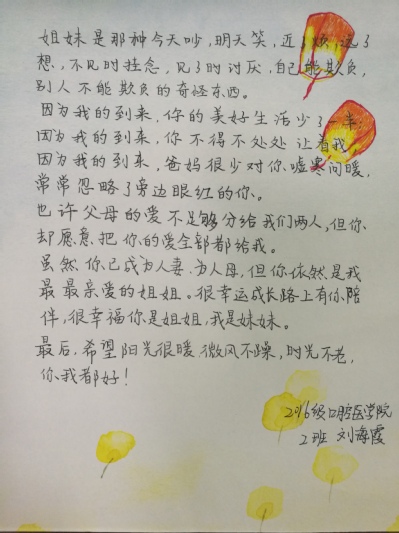 姐妹是那种今天吵,明天笑,近了烦,远了
想,不见时挂念,见了时讨厌,自己能欺负,
别人不能欺负的奇怪东西。
因为我的到来,你的美好生活少了一半,
因为我的到来,你不得不处处让着我,
因为我的到来,爸妈很少对你嘘寒问暖,
常常忽略了旁边眼红的你。
也许父母的爱不足够分给我们两人,但你
却愿意把你的爱全部都给我。
虽然你已成为人妻.为人母,但你依然是我
最最亲爱的姐姐。很幸运成长路上有你陪
伴,很幸福你是姐姐,我是妹妹。
最后,希望阳光很暖.微风不躁,时光不老,
你我都好!
2016级口腔医学院
2班 刘海霞